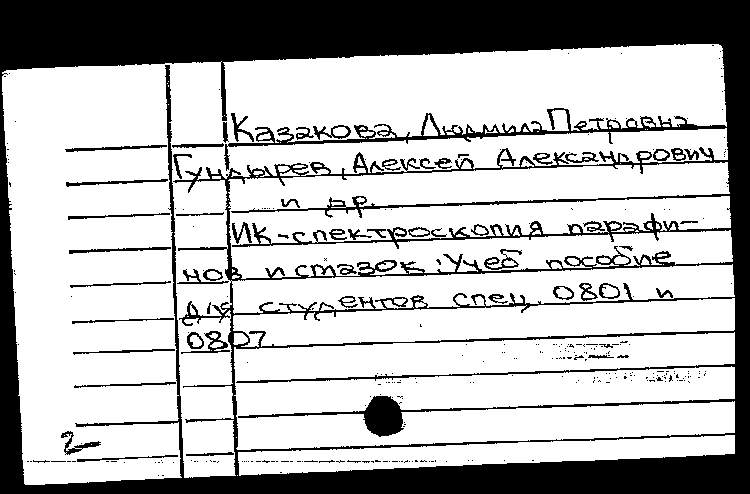 Казакова, Людмила Петровна
Гундырев, Алексей Александрович
и др.
ИК-спектроскопия парафи-
нов и смазок: Учеб. пособие
для студентов спец. 0801 и
0807.
2